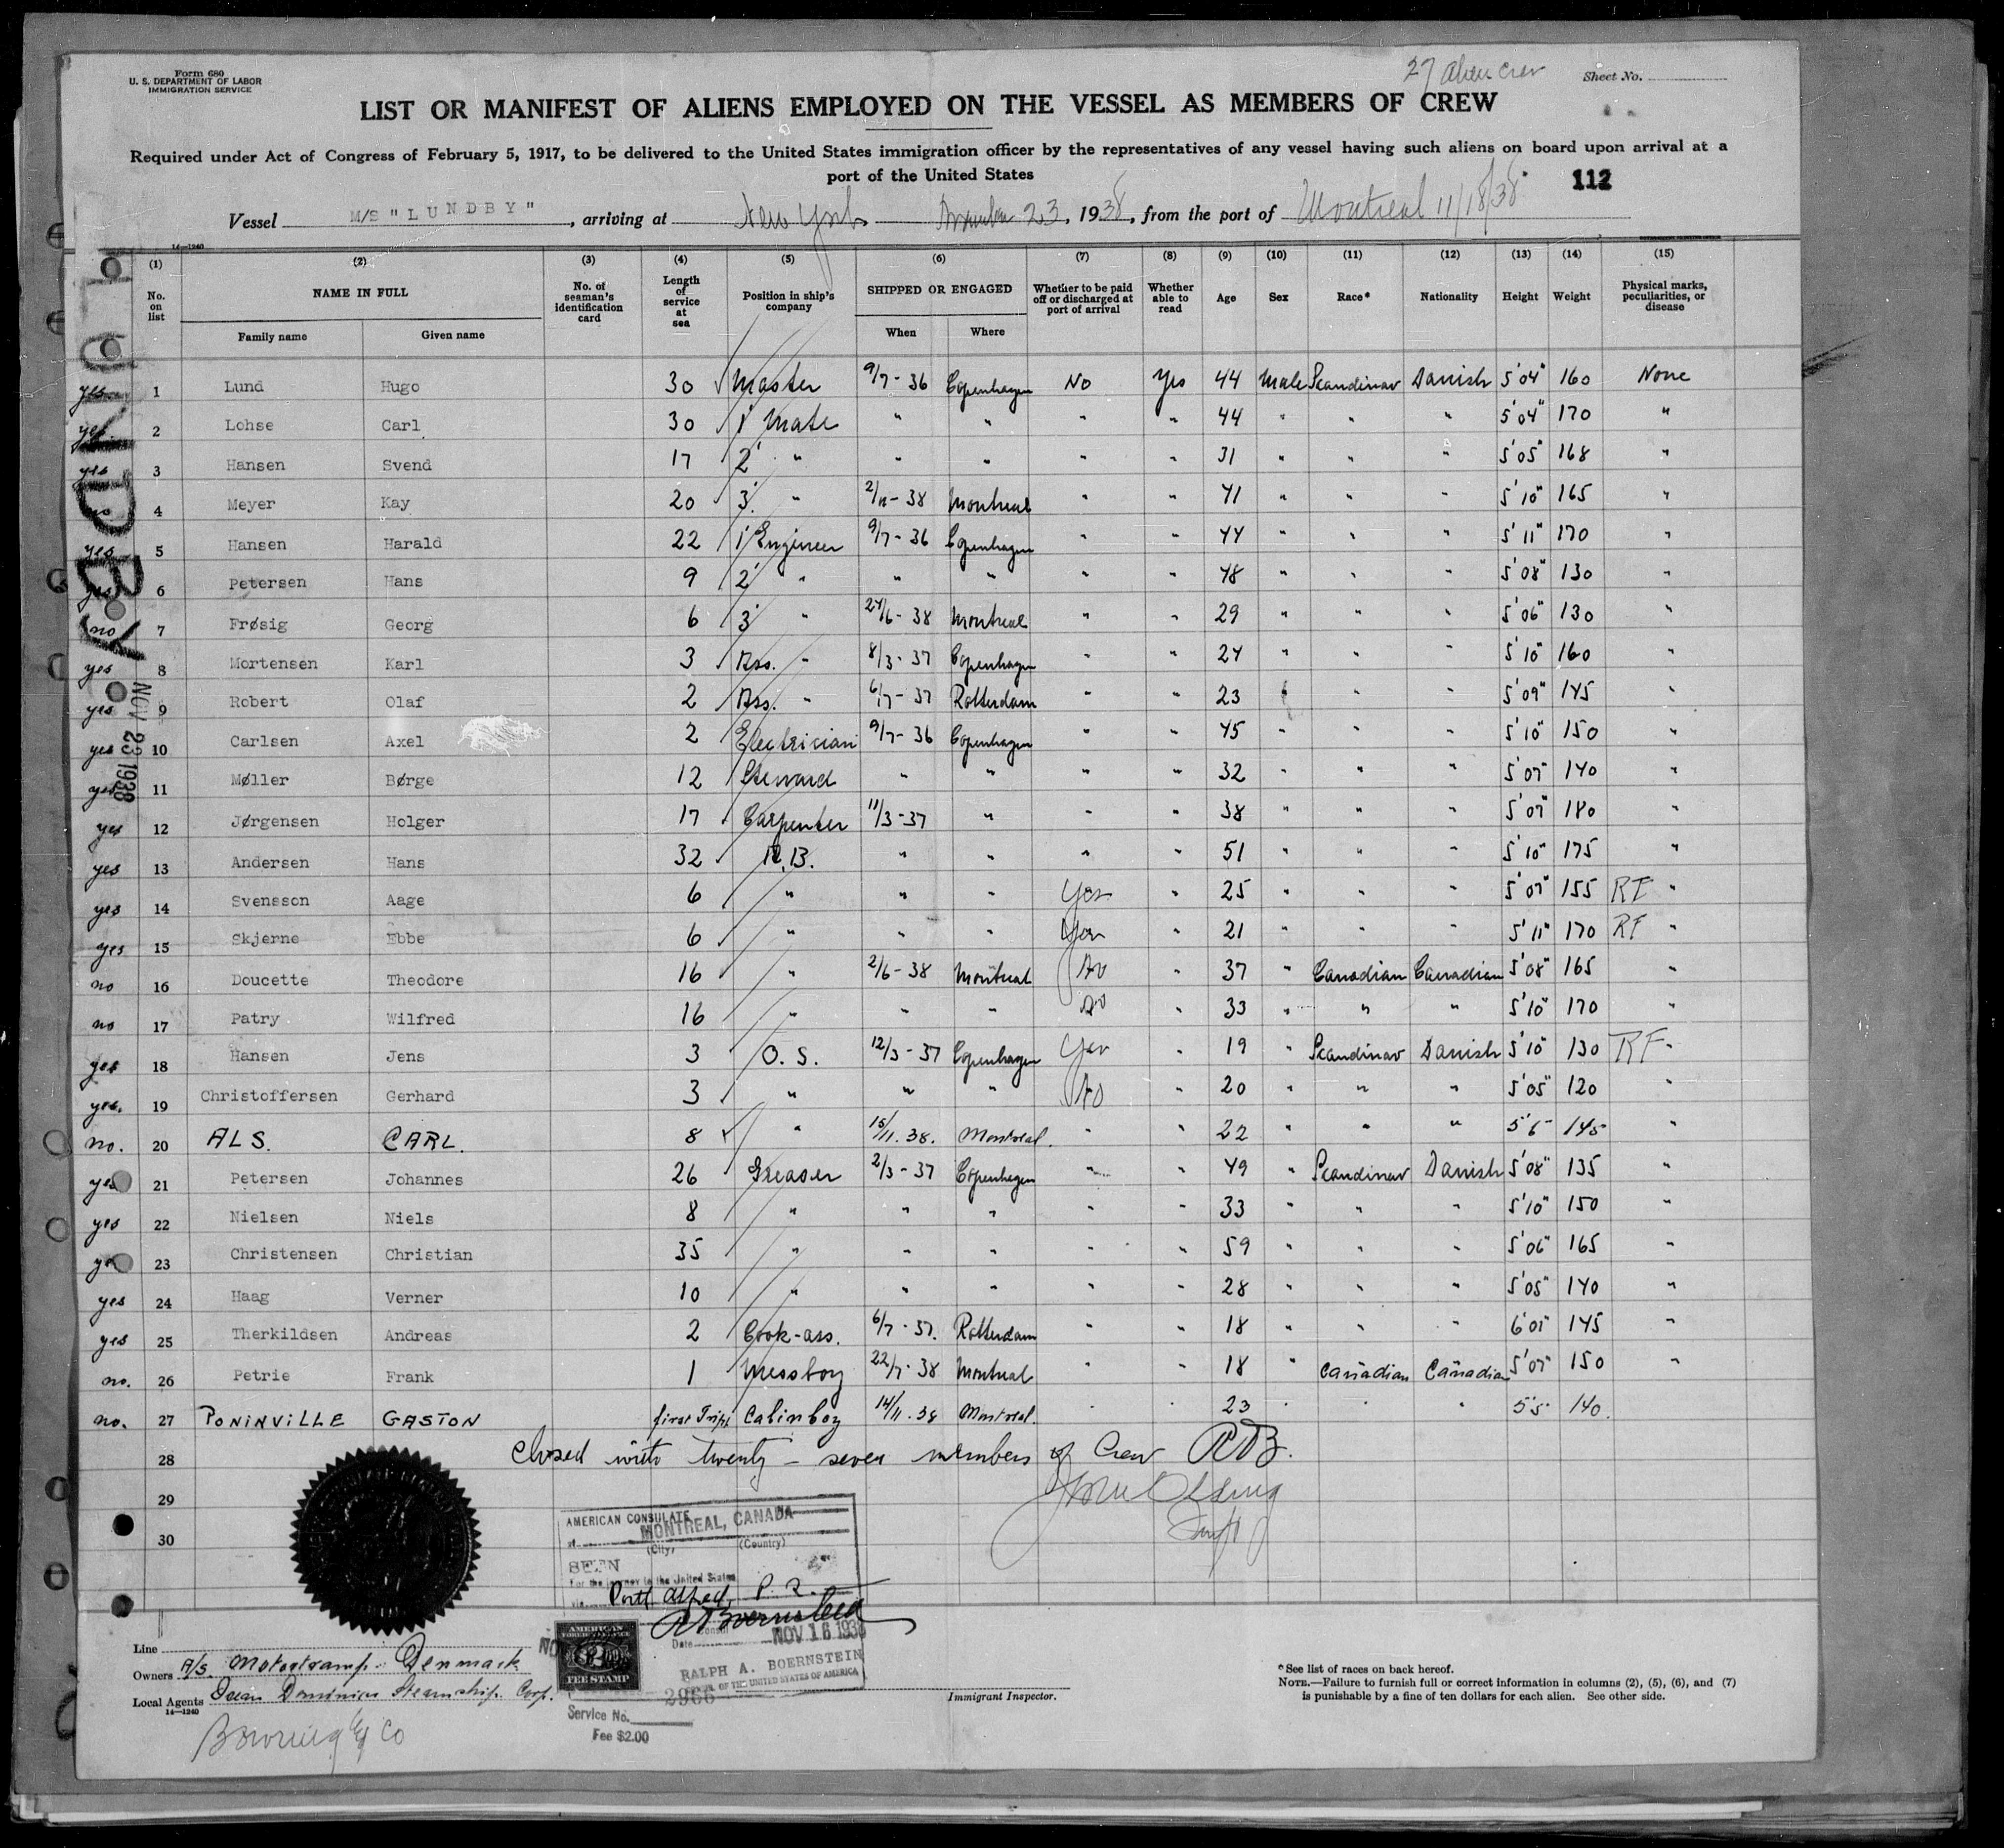 Form 680
U. S. DEPARTMENT OF LABOR
IMMIGRATION SERVICE
27 alien crew
Sheet No.
LIST OR MANIFEST OF ALIENS EMPLOYED ON THE VESSEL AS MEMBERS OF CREW
Required under Act of Congress of February 5, 1917, to be delivered to the United States immigration officer by the representatives of any vessel having such aliens on board upon arrival at a
port of the United States
112
Vessel M/S "LUNDBY", arriving at New York November 23, 1938, from the port of Montreal 11/18/38
14—1240
(1) (2) (3) (4) (5) (6) (7) (8) (9) (10) (11) (12) (13) (14) (15)
No. on list NAME IN FULL No. of seaman's identification card Length of service at sea Position in ship's company SHIPPED OR ENGAGED Whether to be paid off or discharged at port of arrival Whether able to read Age Sex Race* Nationality Height Weight Physical marks, peculiarities, or disease
Family name Given name When Where
yes 1 Lund Hugo 30 Master 9/7-36 Copenhagen No Yes 44 Male Scandinav Danish 5'04" 160 None
yes 2 Lohse Carl 30 1' Mate " " " " 44 " " " 5'04" 170 "
yes 3 Hansen Svend 17 2' " " " " " 31 " " " 5'05" 168 "
no 4 Meyer Kay 20 3' " 2/11-38 Montreal " " 41 " " " 5'10" 165 "
yes 5 Hansen Harald 22 1' Engineer 9/7-36 Copenhagen " " 44 " " " 5'11" 170 "
yes 6 Petersen Hans 9 2' " " " " " 48 " " " 5'08" 130 "
no 7 Frøsig Georg 6 3' " 24/6-38 Montreal " " 29 " " " 5'06" 130 "
yes 8 Mortensen Karl 3 Ass. " 8/3-37 Copenhagen " " 24 " " " 5'10" 160 "
yes 9 Robert Olaf 2 Ass. " 6/7-37 Rotterdam " " 23 " " " 5'09" 145 "
yes 10 Carlsen Axel 2 Electrician 9/7-36 Copenhagen " " 45 " " " 5'10" 150 "
yes 11 Møller Børge 12 Steward " " " " 32 " " " 5'07" 140 "
yes 12 Jørgensen Holger 17 Carpenter 11/3-37 " " " 38 " " " 5'07" 180 "
yes 13 Andersen Hans 32 A.B. " " " " 51 " " " 5'10" 175 "
yes 14 Svensson Aage 6 " " " Yes " 25 " " " 5'07" 155 RF "
yes 15 Skjerne Ebbe 6 " " " Yes " 21 " " " 5'11" 170 RF "
no 16 Doucette Theodore 16 " 2/6-38 Montreal No " 37 " Canadian Canadian 5'08" 165 "
no 17 Patry Wilfred 16 " " " No " 33 " " " 5'10" 170 "
yes 18 Hansen Jens 3 O.S. 12/3-37 Copenhagen Yes " 19 " Scandinav Danish 5'10" 130 RF "
yes. 19 Christoffersen Gerhard 3 " " " No " 20 " " " 5'05" 120 "
no. 20 ALS. CARL. 8 " 15/11.38. Montreal. " " 22 " " " 5'6" 145 "
yes 21 Petersen Johannes 26 Greaser 2/3-37 Copenhagen " " 49 " Scandinav Danish 5'08" 135 "
yes 22 Nielsen Niels 8 " " " " " 33 " " " 5'10" 150 "
yes 23 Christensen Christian 35 " " " " " 59 " " " 5'06" 165 "
yes 24 Haag Verner 10 " " " " " 28 " " " 5'05" 140 "
yes 25 Therkildsen Andreas 2 Cook-ass. 6/7-37. Rotterdam " " 18 " " " 6'01" 145 "
no. 26 Petrie Frank 1 Messboy 22/7-38 Montreal " " 18 " Canadian Canadian 5'07" 150 "
no. 27 PONINVILLE GASTON first Trip Cabinboy 14/11.38 Montreal. " " 23 " " " 5'5" 140.
28 Closed with twenty-seven members of Crew RAB.
29
30
A. BORDING
NOV 23 1938
AMERICAN CONSULATE
at MONTREAL, CANADA
(City) (Country)
SEEN
For the journey to the United States
via Port Alfred, P. Q.
RABoernstein
Consul
Date NOV 16 1938
RALPH A. BOERNSTEIN
OF THE UNITED STATES OF AMERICA
AMERICAN
FOREIGN SERVICE
FEE STAMP
2966
Service No.
Fee $2.00
Line
Owners A/S. Motortramp. Denmark
Local Agents Ocean Dominion Steamship. Corp.
14—1240
Bowring & Co
Immigrant Inspector.
*See list of races on back hereof.
NOTE.—Failure to furnish full or correct information in columns (2), (5), (6), and (7)
is punishable by a fine of ten dollars for each alien. See other side.